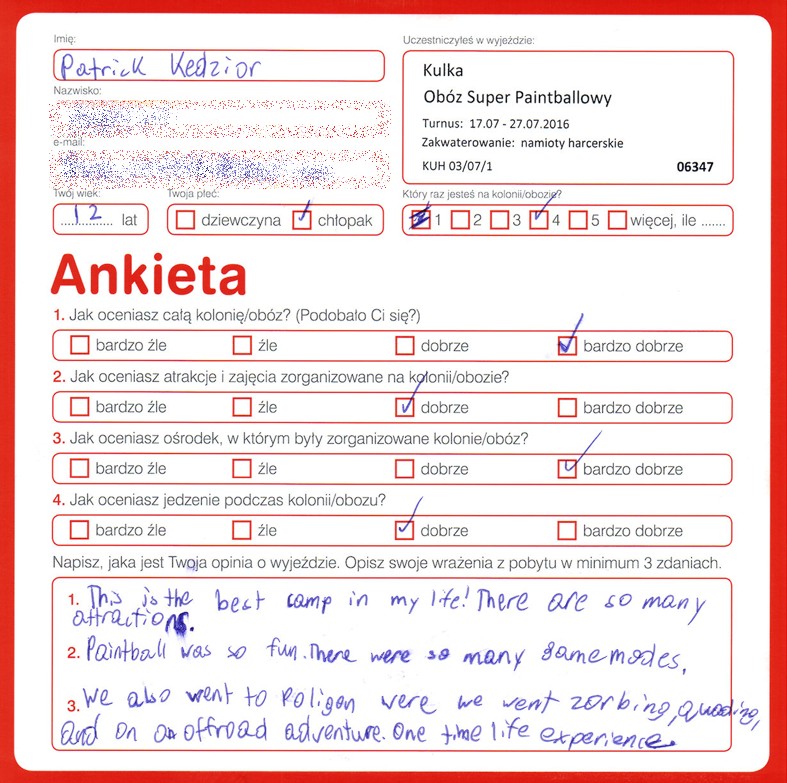 Imię:
Patrick Kedzior
Nazwisko:
e-mail:
Twój wiek:
12 lat
Twoja płeć:
dziewczyna chłopak
Uczestniczyłeś w wyjeździe:
Kulka
Obóz Super Paintballowy
Turnus: 17.07 - 27.07.2016
Zakwaterowanie: namioty harcerskie
KUH 03/07/1 06347
Który raz jesteś na kolonii/obozie?
1 2 3 4 5 więcej, ile .......
Ankieta
1. Jak oceniasz całą kolonię/obóz? (Podobało Ci się?)
bardzo źle źle dobrze bardzo dobrze
2. Jak oceniasz atrakcje i zajęcia zorganizowane na kolonii/obozie?
bardzo źle źle dobrze bardzo dobrze
3. Jak oceniasz ośrodek, w którym były zorganizowane kolonie/obóz?
bardzo źle źle dobrze bardzo dobrze
4. Jak oceniasz jedzenie podczas kolonii/obozu?
bardzo źle źle dobrze bardzo dobrze
Napisz, jaka jest Twoja opinia o wyjeździe. Opisz swoje wrażenia z pobytu w minimum 3 zdaniach.
1. This is the best camp in my life! There are so many
attractions.
2. Paintball was so fun. There were so many game modes.
3. We also went to Poligon were we went zorbing, quading,
and on an offroad adventure. One time life experience.